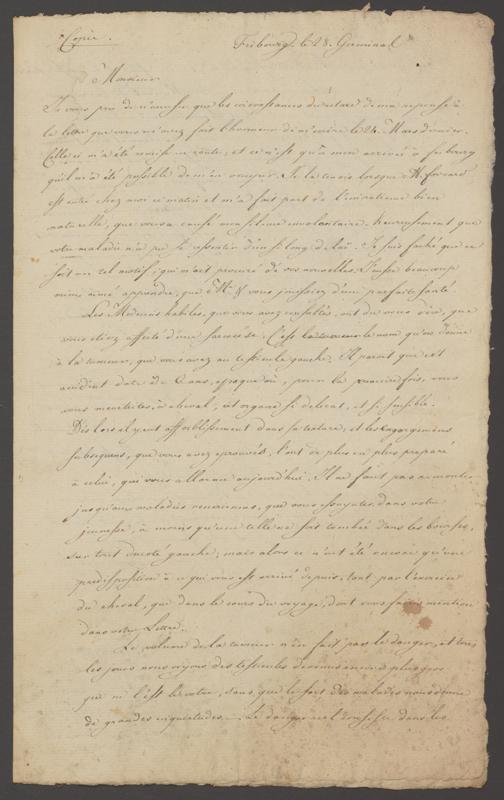 Copie.
Fribourg, le 28. Germinal
Monsieur
Je vous prie de n'accuser que les circonstances du retard de ma reponse à
la lettre que vous m'avez fait l'honneur de m'ecrire le 24. Mars dernier.
Celle ci m'a été remise en route, et ce n'est qu'à mon arrivée à fribourg
qu'il m'a été possible de m'en occuper. Je la tenois lorsque Mr.
est entré chez moi ce matin et m'a fait part de l'inquietude bien
naturelle, que vous a causé mon silence involontaire. Heureusement que
votre maladie n'a pu se ressentir d'un si long delai. Je suis faché que ce
soit un tel motif, qui m'ait procuré de vos nouvelles. J'eusse beaucoup
mieux aimé apprendre, que vous jouissiez d'une parfaite santé.
Les Medecins habiles, que vous avez consultés, ont du vous dire, que
vous etiez affecté d'une sarcocèle. C'est le nom qu'on donne
à la tumeur, que vous avez au testicule gauche. Il parait que cet
accident date de ans, epoque où, pour la premiere fois, vous
vous meurtrites, à cheval, cet organe si delicat, et si sensible.
Dès lors il y eut affoiblissement dans sa texture, et les engorgemens
subsequens, que vous avez eprouvés, l'ont de plus en plus preparé
à celui, qui vous allarme aujourd'hui. Il ne faut pas remonter
jusqu'aux maladies veneriennes, que vous essuyates dans votre
jeunesse, à moins qu'une telle ne soit tombée dans les bourses,
sur tout du coté gauche, mais alors ce n'eut été encore qu'une
predisposition à ce qui vous est arrivé depuis, tant par l'exercice
du cheval, que dans le cours du voyage, dont vous faites mention
dans votre Lettre.
Le volume de la tumeur n'en fait pas le danger, et tous
les jours nous voyons des testicules devenus encore plus gros
que ne l'est le votre, sans que le sort des malades nous donne
de grandes inquietudes. Le danger est dans les